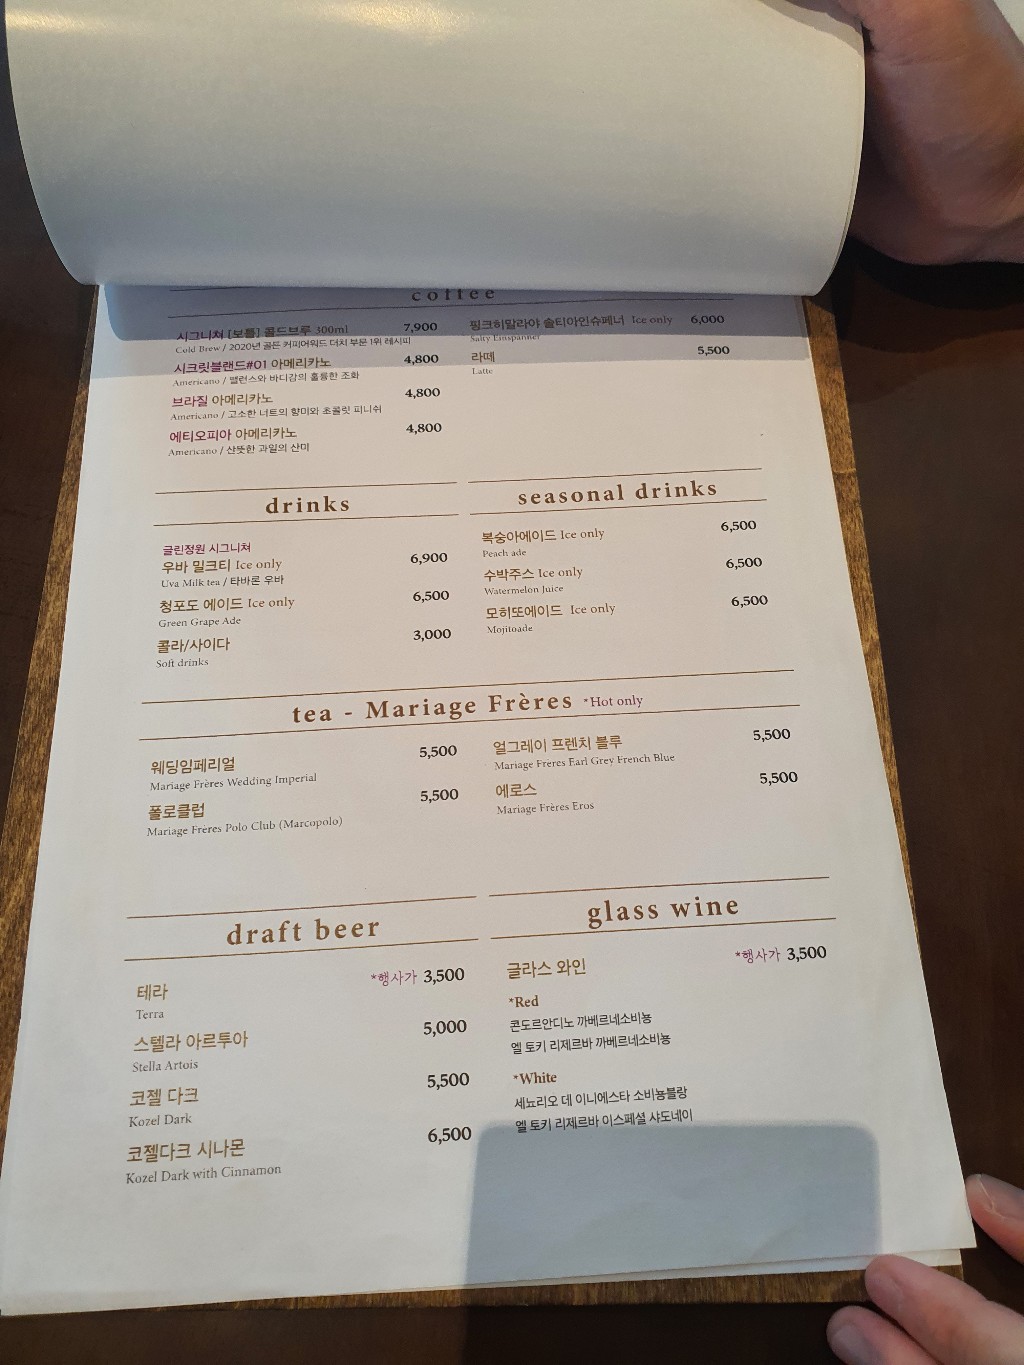 coffee
시그니쳐 [보틀] 콜드브루 300ml 7,900
Cold Brew / 2020년 골든 커피어워드 더치 부문 1위 레시피
시크릿블랜드#01 아메리카노 4,800
Americano / 밸런스와 바디감의 훌륭한 조화
브라질 아메리카노 4,800
Americano / 고소한 너트의 향미와 초콜릿 피니쉬
에티오피아 아메리카노 4,800
Americano / 산뜻한 과일의 산미
핑크히말라야 솔티아인슈페너 Ice only 6,000
Salty Einspanner
라떼 5,500
Latte
drinks
글린정원 시그니쳐
우바 밀크티 Ice only 6,900
Uva Milk tea / 타바론 우바
청포도 에이드 Ice only 6,500
Green Grape Ade
콜라/사이다 3,000
Soft drinks
seasonal drinks
복숭아에이드 Ice only 6,500
Peach ade
수박주스 Ice only 6,500
Watermelon Juice
모히또에이드 Ice only 6,500
Mojitoade
tea - Mariage Frères *Hot only
웨딩임페리얼 5,500
Mariage Frères Wedding Imperial
폴로클럽 5,500
Mariage Frères Polo Club (Marcopolo)
얼그레이 프렌치 블루 5,500
Mariage Frères Earl Grey French Blue
에로스 5,500
Mariage Frères Eros
draft beer
테라 *행사가 3,500
Terra
스텔라 아르투아 5,000
Stella Artois
코젤 다크 5,500
Kozel Dark
코젤다크 시나몬 6,500
Kozel Dark with Cinnamon
glass wine
글라스 와인 *행사가 3,500
*Red
콘도르안디노 까베르네소비뇽
엘 토키 리제르바 까베르네소비뇽
*White
세뇨리오 데 이니에스타 소비뇽블랑
엘 토키 리제르바 이스페셜 샤도네이